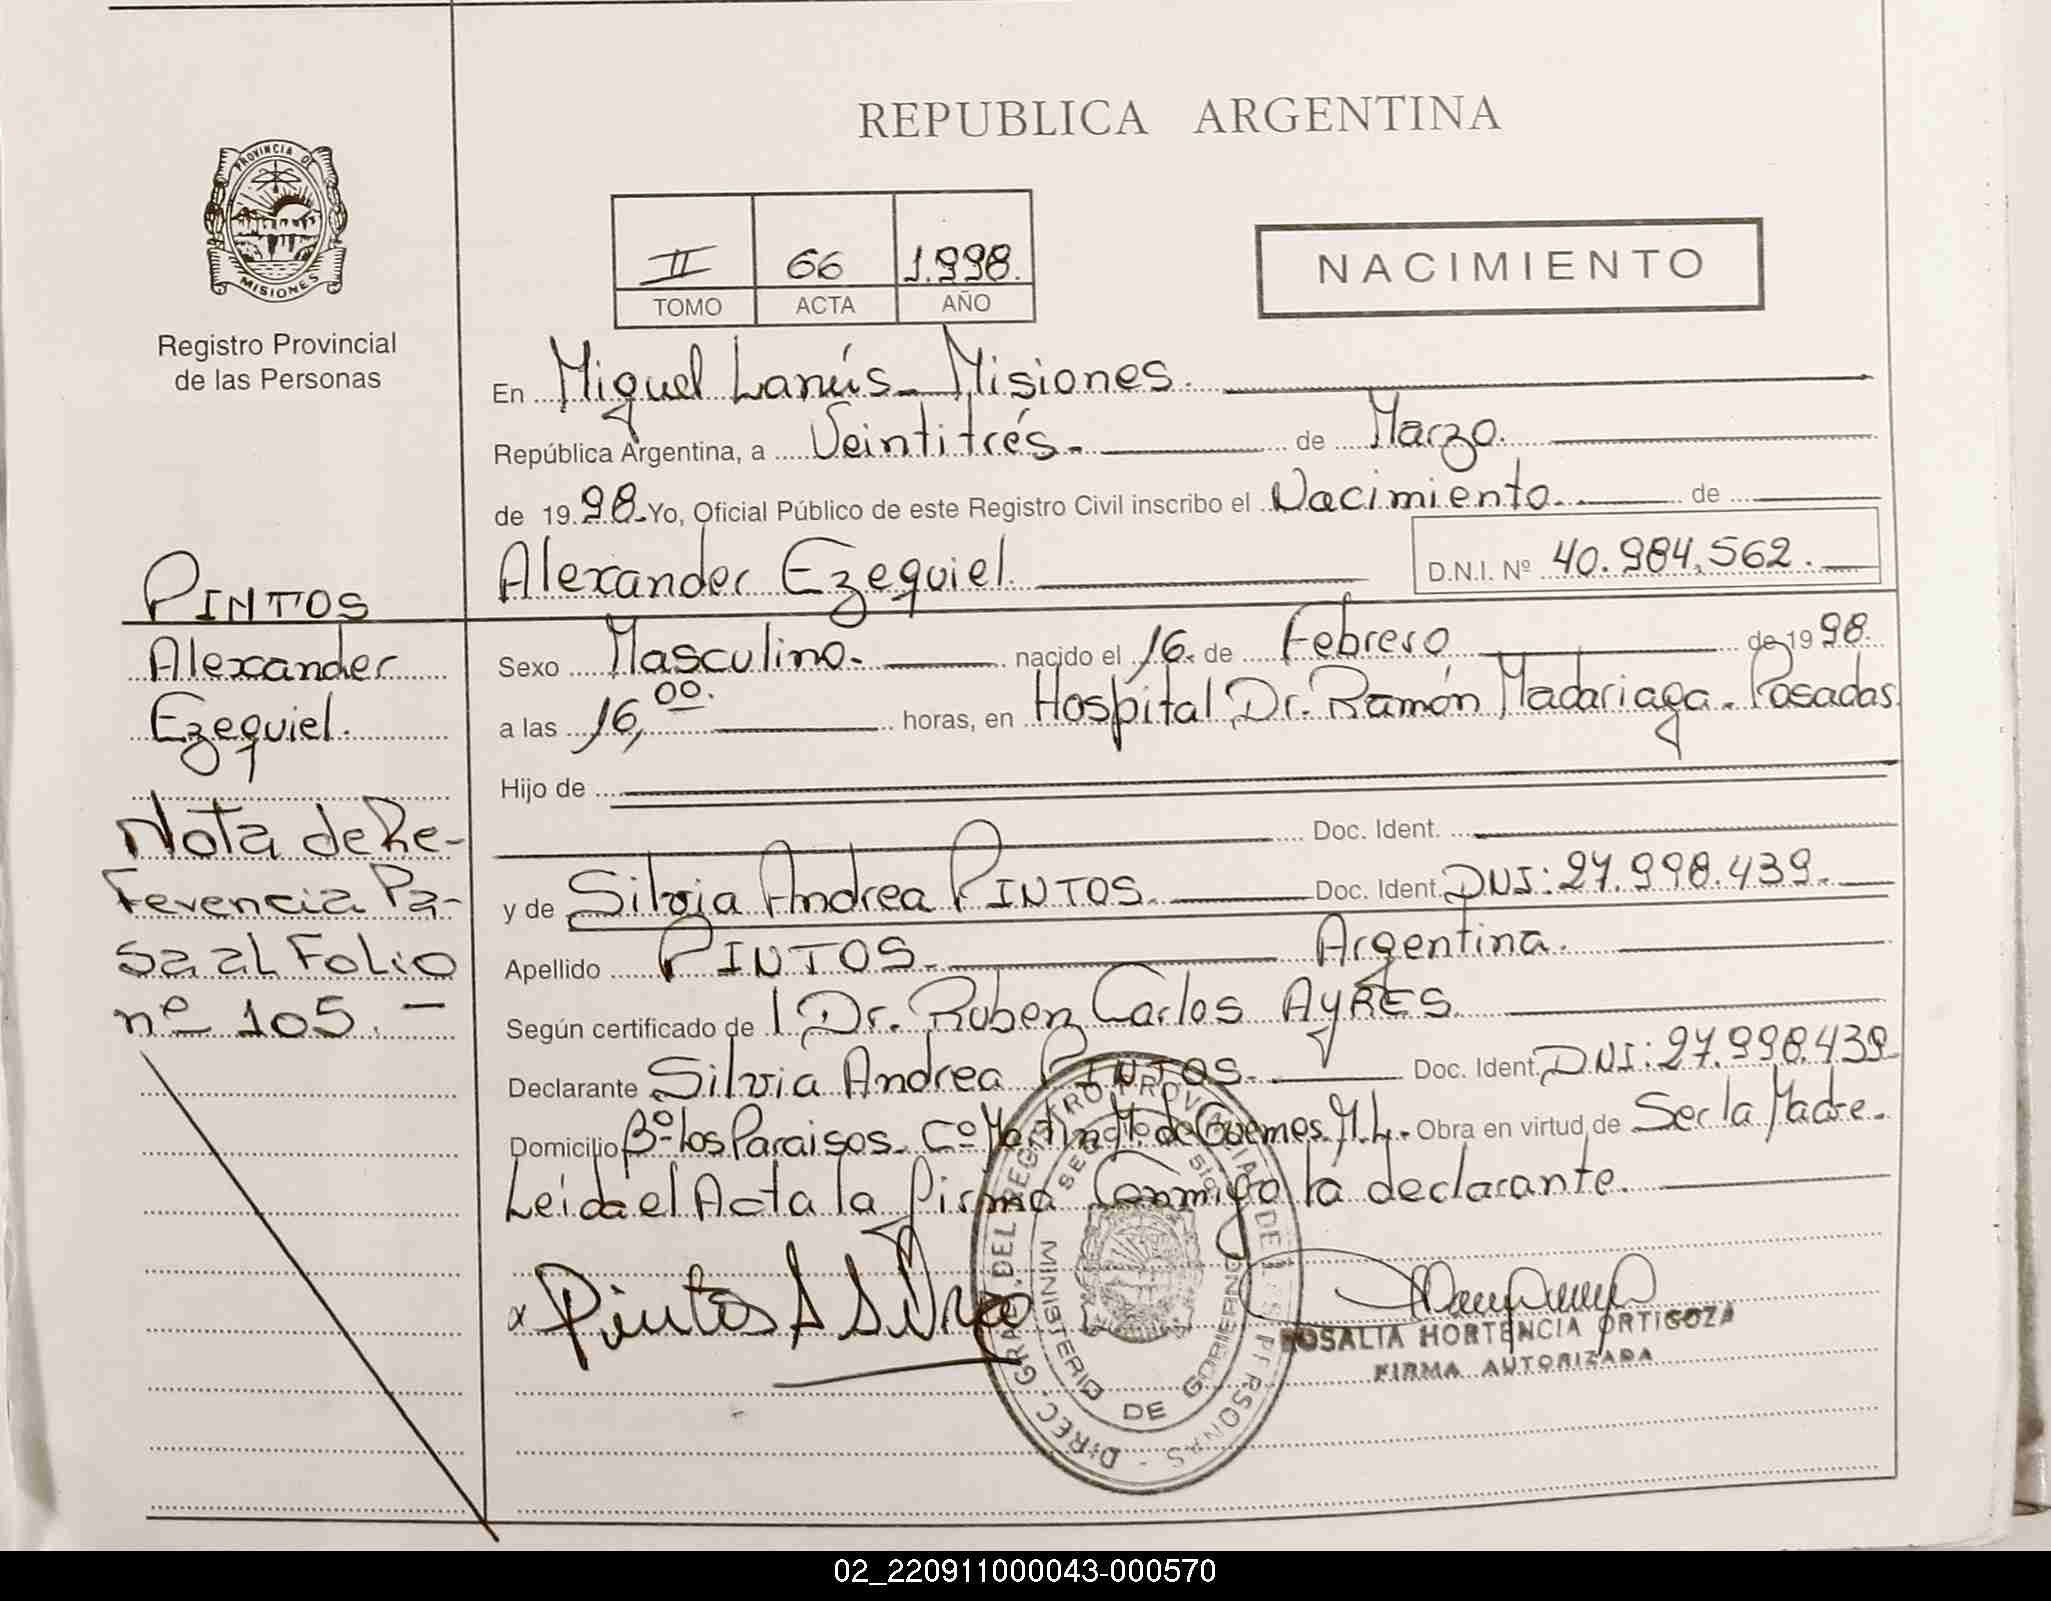 REPUBLICA ARGENTINA
PROVINCIA DE
MISIONES
Registro Provincial
de las Personas
II 66 1.998.
TOMO ACTA AÑO
NACIMIENTO
En Miguel Lanús - Misiones.
República Argentina, a Veintitrés. de Marzo.
de 1998. Yo, Oficial Público de este Registro Civil inscribo el Nacimiento. de
Alexander Ezequiel. D.N.I. Nº 40.984.562.
PINTOS
Alexander
Ezequiel.
Nota de Re-
ferencia Pa-
sa al Folio
nº 105. -
Sexo Masculino. nacido el 16. de Febrero de 1998.
a las 16,00. horas, en Hospital Dr. Ramón Madariaga. Posadas
Hijo de
Doc. Ident.
y de Silvia Andrea PINTOS. Doc. Ident. DNI: 27.998.439.
Apellido PINTOS. Argentina.
Según certificado de Dr. Ruben Carlos AYRES.
Declarante Silvia Andrea PINTOS. Doc. Ident. DNI: 27.998.439
Domicilio Bº los Paraisos. Cº Martin M. de Guemes. M.L. Obra en virtud de Ser la Madre.
Leida el Acta la firma Conmigo la declarante.
x Pintos S Silvia
ROSALIA HORTENCIA ORTIGOZA
FIRMA AUTORIZADA
DIREC. GRAL. DEL REGISTRO PROVINCIAL DE LAS PERSONAS
MINISTERIO DE GOBIERNO
02_220911000043-000570